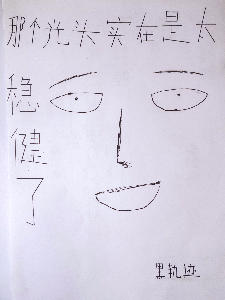 那个光头实在是太
稳健了
黑軌迹